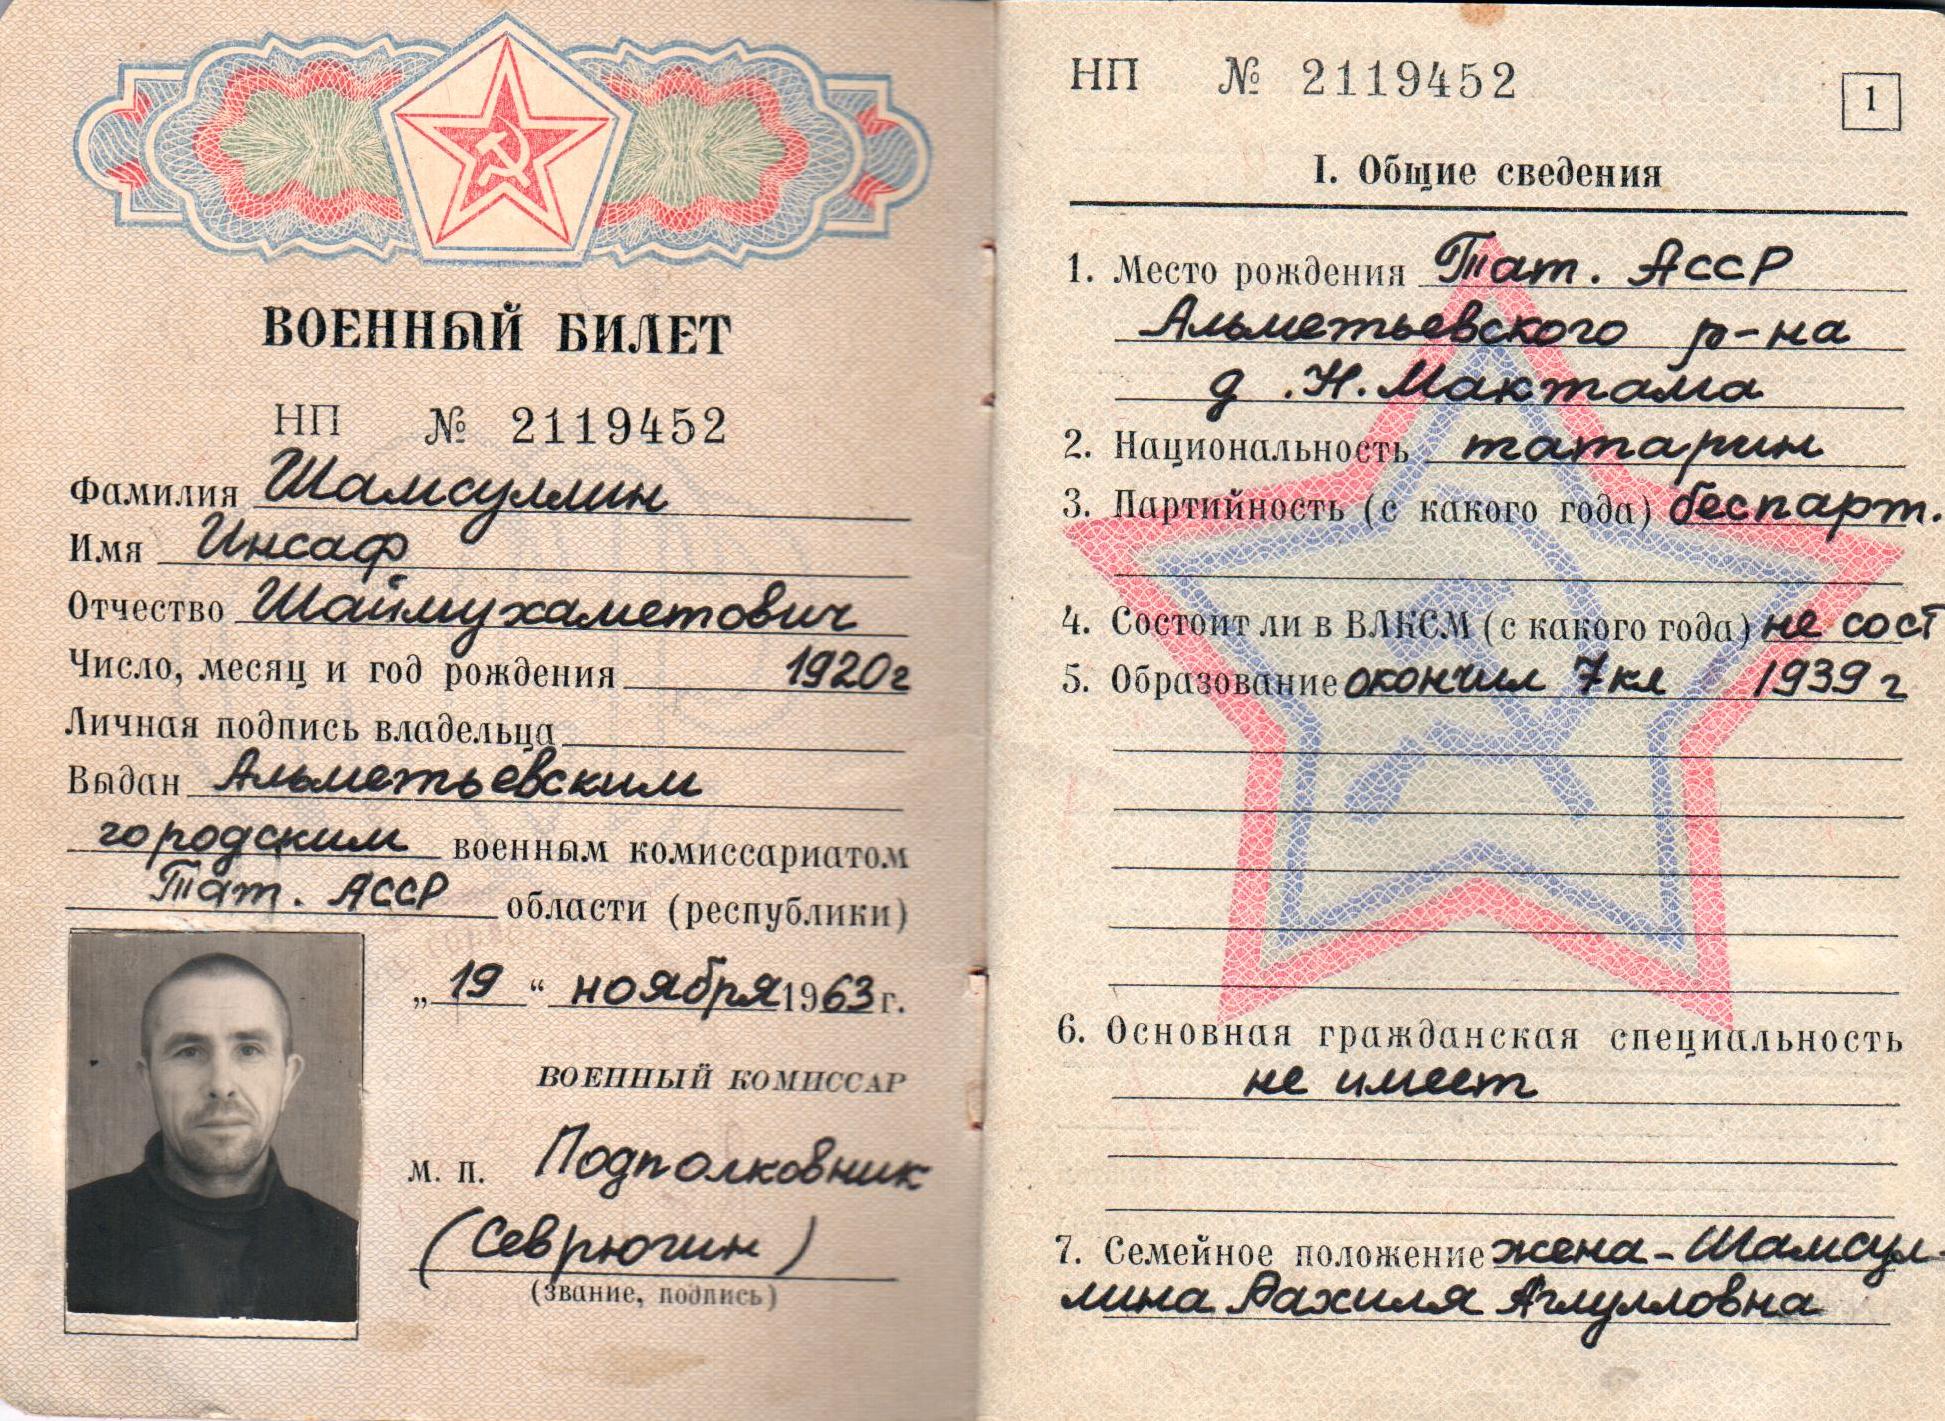 ВОЕННЫЙ БИЛЕТ
НП № 2119452
Фамилия Шамсуллин
Имя Инсаф
Отчество Шаймухаметович
Число, месяц и год рождения 1920г
Личная подпись владельца
Выдан Альметьевским
городским военным комиссариатом
Тат. АССР области (республики)
„19“ ноября 1963 г.
ВОЕННЫЙ КОМИССАР
М. П. Подполковник
(Севрюгин)
(звание, подпись)
НП № 2119452
1
I. Общие сведения
1. Место рождения Тат. АССР
Альметьевского р-на
д. Н. Мактама
2. Национальность татарин
3. Партийность (с какого года) беспарт.
4. Состоит ли в ВЛКСМ (с какого года) не сост
5. Образование окончил 7 кл 1939 г
6. Основная гражданская специальность
не имеет
7. Семейное положение жена - Шамсул-
лина Рахиля Аглулловна